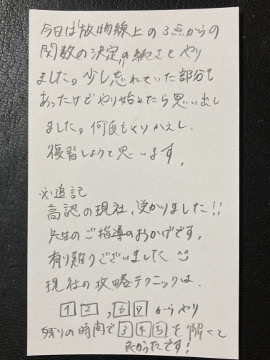 今日は"放物線上の3点からの
関数の決定"の続きをやり
ました。少し忘れていた部分も
あったけどやり始めたら思い出し
ました。何度もくりかえし
復習しようと思います。
※追記
高認の現社、受かりました!!
先生のご指導のおかげです。
有り難うございました
現社の攻略テクニックは、
1 2 , 6 7 からやり
残りの時間で 3 4 5 を解くと
良かったです!